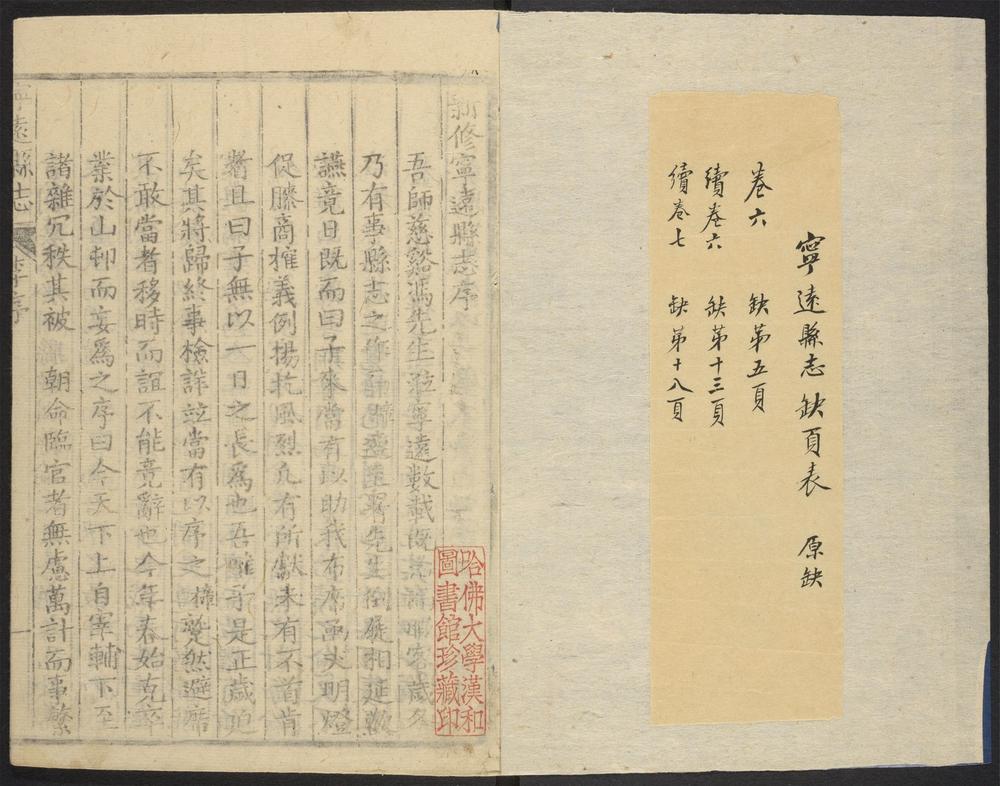 寧遠縣志缺頁表　原缺
卷六　缺第五頁
續卷六　缺第十三頁
續卷七　缺第十八頁
新修寧遠縣志序
吾師慈谿馮先生蒞寧遠數載既
乃有事縣志之作 先生倒屣相延歡
讌竟日既而曰子來當有以助我布席 明燈
促膝商搉義例揚扢風烈凡有所獻未有不首肯
者且曰子無以一日之長爲也吾 是正歲
矣其將歸終事檢詳竝當有以序之 蹙然避席
不敢當者移時而誼不能竟辭也今年春始克卒
業於山邨而妄爲之序曰今天下上自宰輔下至
諸雜冗秩其被 朝命臨官者無慮萬計而事繁
寧遠縣志 序 一
哈佛大學漢和
圖書館珍藏印